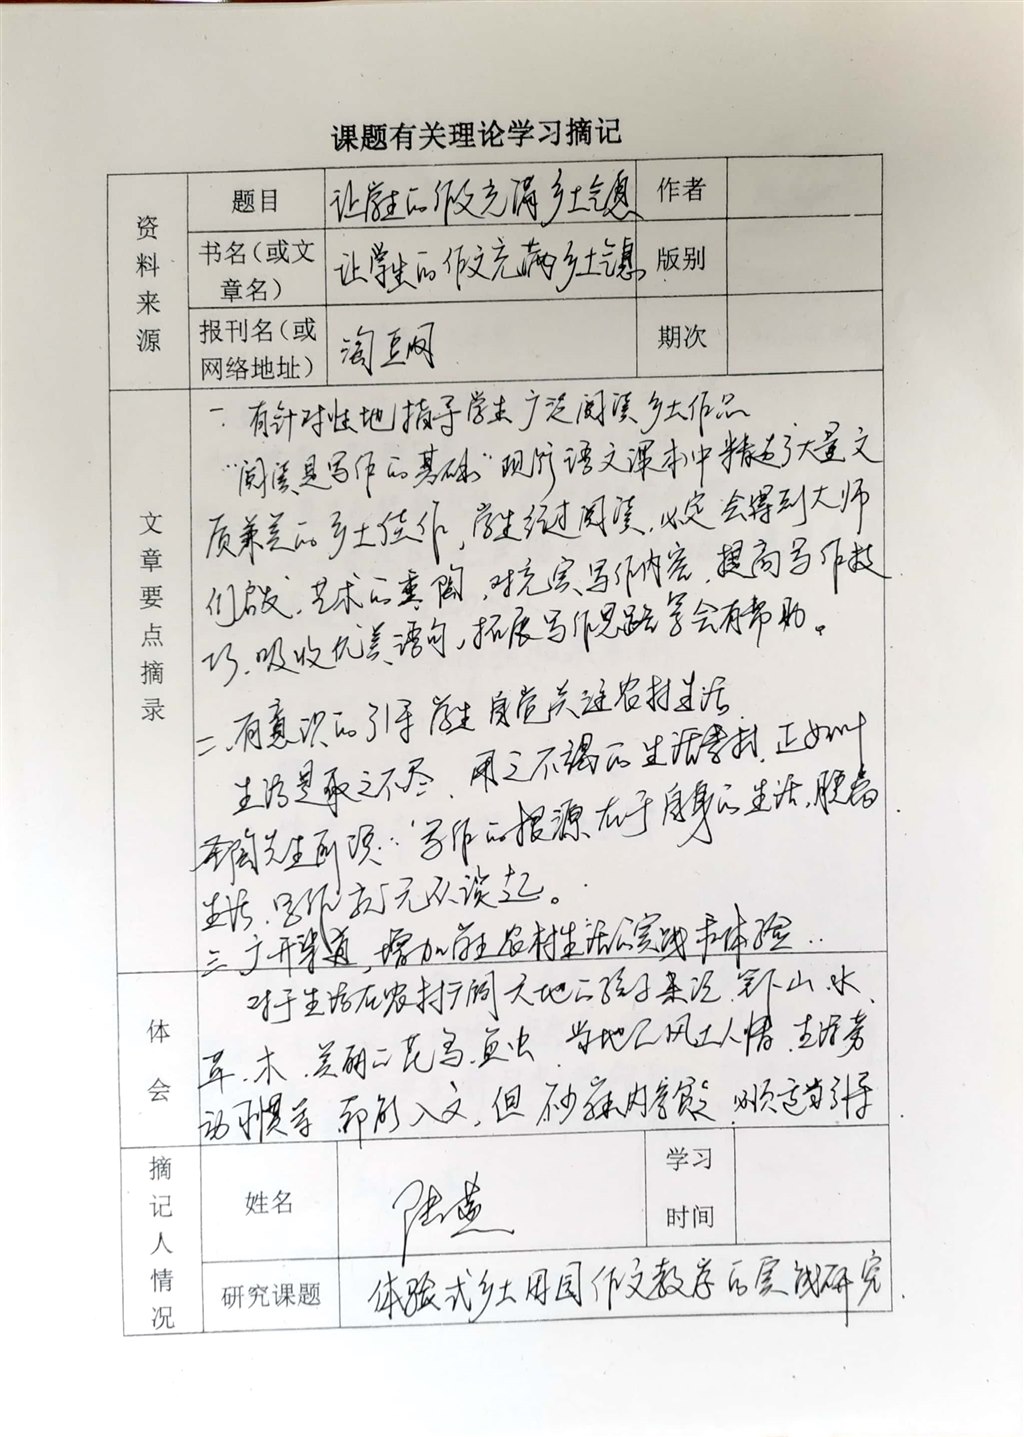 课题有关理论学习摘记
资料来源
题目 让学生的作文充满乡土气息 作者
书名（或文章名） 让学生的作文充满乡土气息 版别
报刊名（或网络地址） 淘豆网 期次
文章要点摘录
一、有针对性地指导学生广泛阅读乡土作品
“阅读是写作的基础”现行语文课本中精选了大量文
质兼美的乡土佳作，学生经过阅读，必定会得到大师
们启发、艺术的熏陶，对充实写作内容、提高写作技
巧、吸收优美语句，拓展写作思路等会有帮助。
二、有意识的引导学生自觉关注农村生活
生活是取之不尽、用之不竭的生活素材，正如叶
圣陶先生所说：写作的根源在于自身的生活，脱离
生活，写作就无从谈起。
三、广开渠道，增加学生农村生活的实践和体验
体会
对于生活在农村广阔天地的孩子来说，家乡山、水、
草、木、美丽的花鸟鱼虫、当地的风土人情、生活劳
动习惯等都能入文，但 内 必须适当引导
摘记人情况
姓名 陆燕 学习时间
研究课题 体验式乡土田园作文教学的实践研究